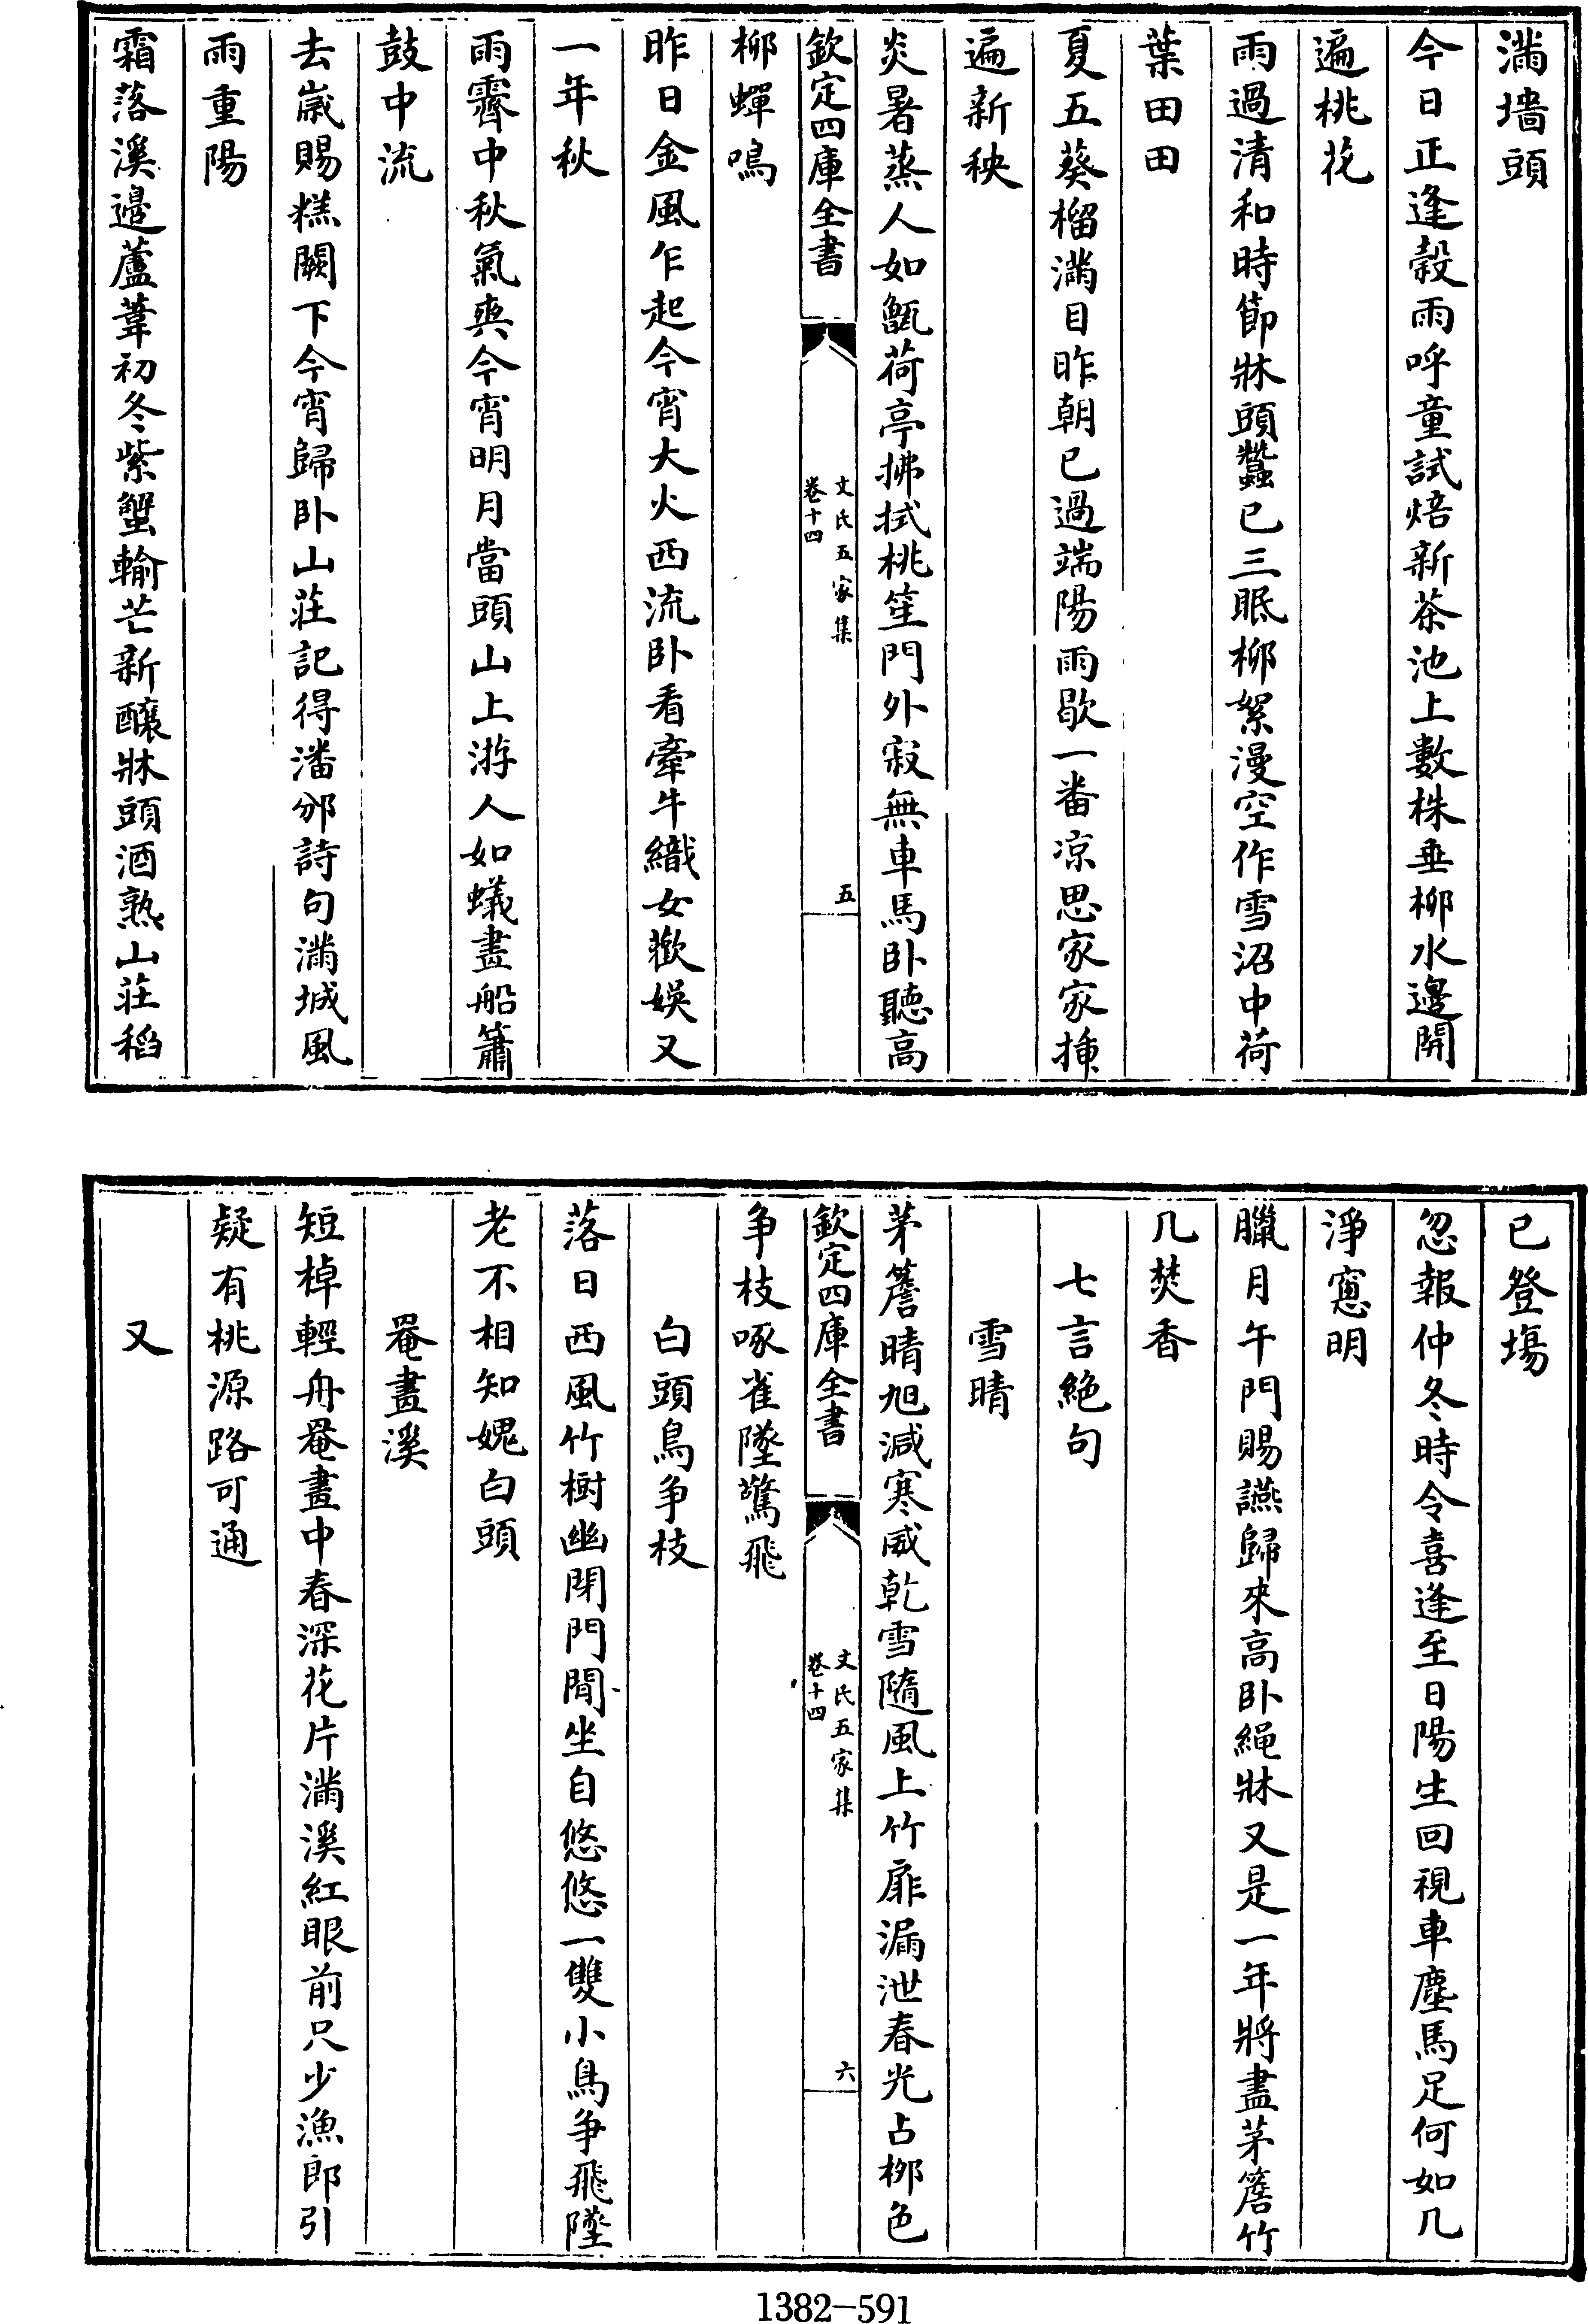 滿墻頭
今日正逢穀雨呼童試焙新茶池上數株垂柳水邊開
遍桃花
雨過清和時節牀頭蠶已三眠柳絮漫空作雪沼中荷
葉田田
夏五葵榴滿目昨朝已過端陽雨歇一番凉思家家挿
遍新秧
炎暑蒸人如甑荷亭拂拭桃笙門外寂無車馬卧聽高
欽定四庫全書
文氏五家集
卷十四
五
柳蟬鳴
昨日金風乍起今宵大火西流卧看牽牛織女歡娛又
一年秋
雨霽中秋氣爽今宵明月當頭山上游人如蟻畫船簫
鼓中流
去歲賜糕闕下今宵歸卧山莊記得潘邠詩句滿城風
雨重陽
霜落溪邊蘆葦初冬紫蟹輸芒新釀牀頭酒熟山莊稻
已登塲
忽報仲冬時令喜逢至日陽生回視車塵馬足何如几
淨窻明
臘月午門賜讌歸來高卧繩牀又是一年將盡茅簷竹
几焚香
七言絶句
雪晴
茅簷晴旭減寒威乾雪隨風上竹扉漏泄春光占栁色
欽定四庫全書
文氏五家集
卷十四
六
争枝啄雀墜驚飛
白頭鳥争枝
落日西風竹樹幽閉門閒坐自悠悠一雙小鳥争飛墜
老不相知媿白頭
罨畫溪
短棹輕舟罨畫中春深花片滿溪紅眼前只少漁郎引
疑有桃源路可通
又
1382-591